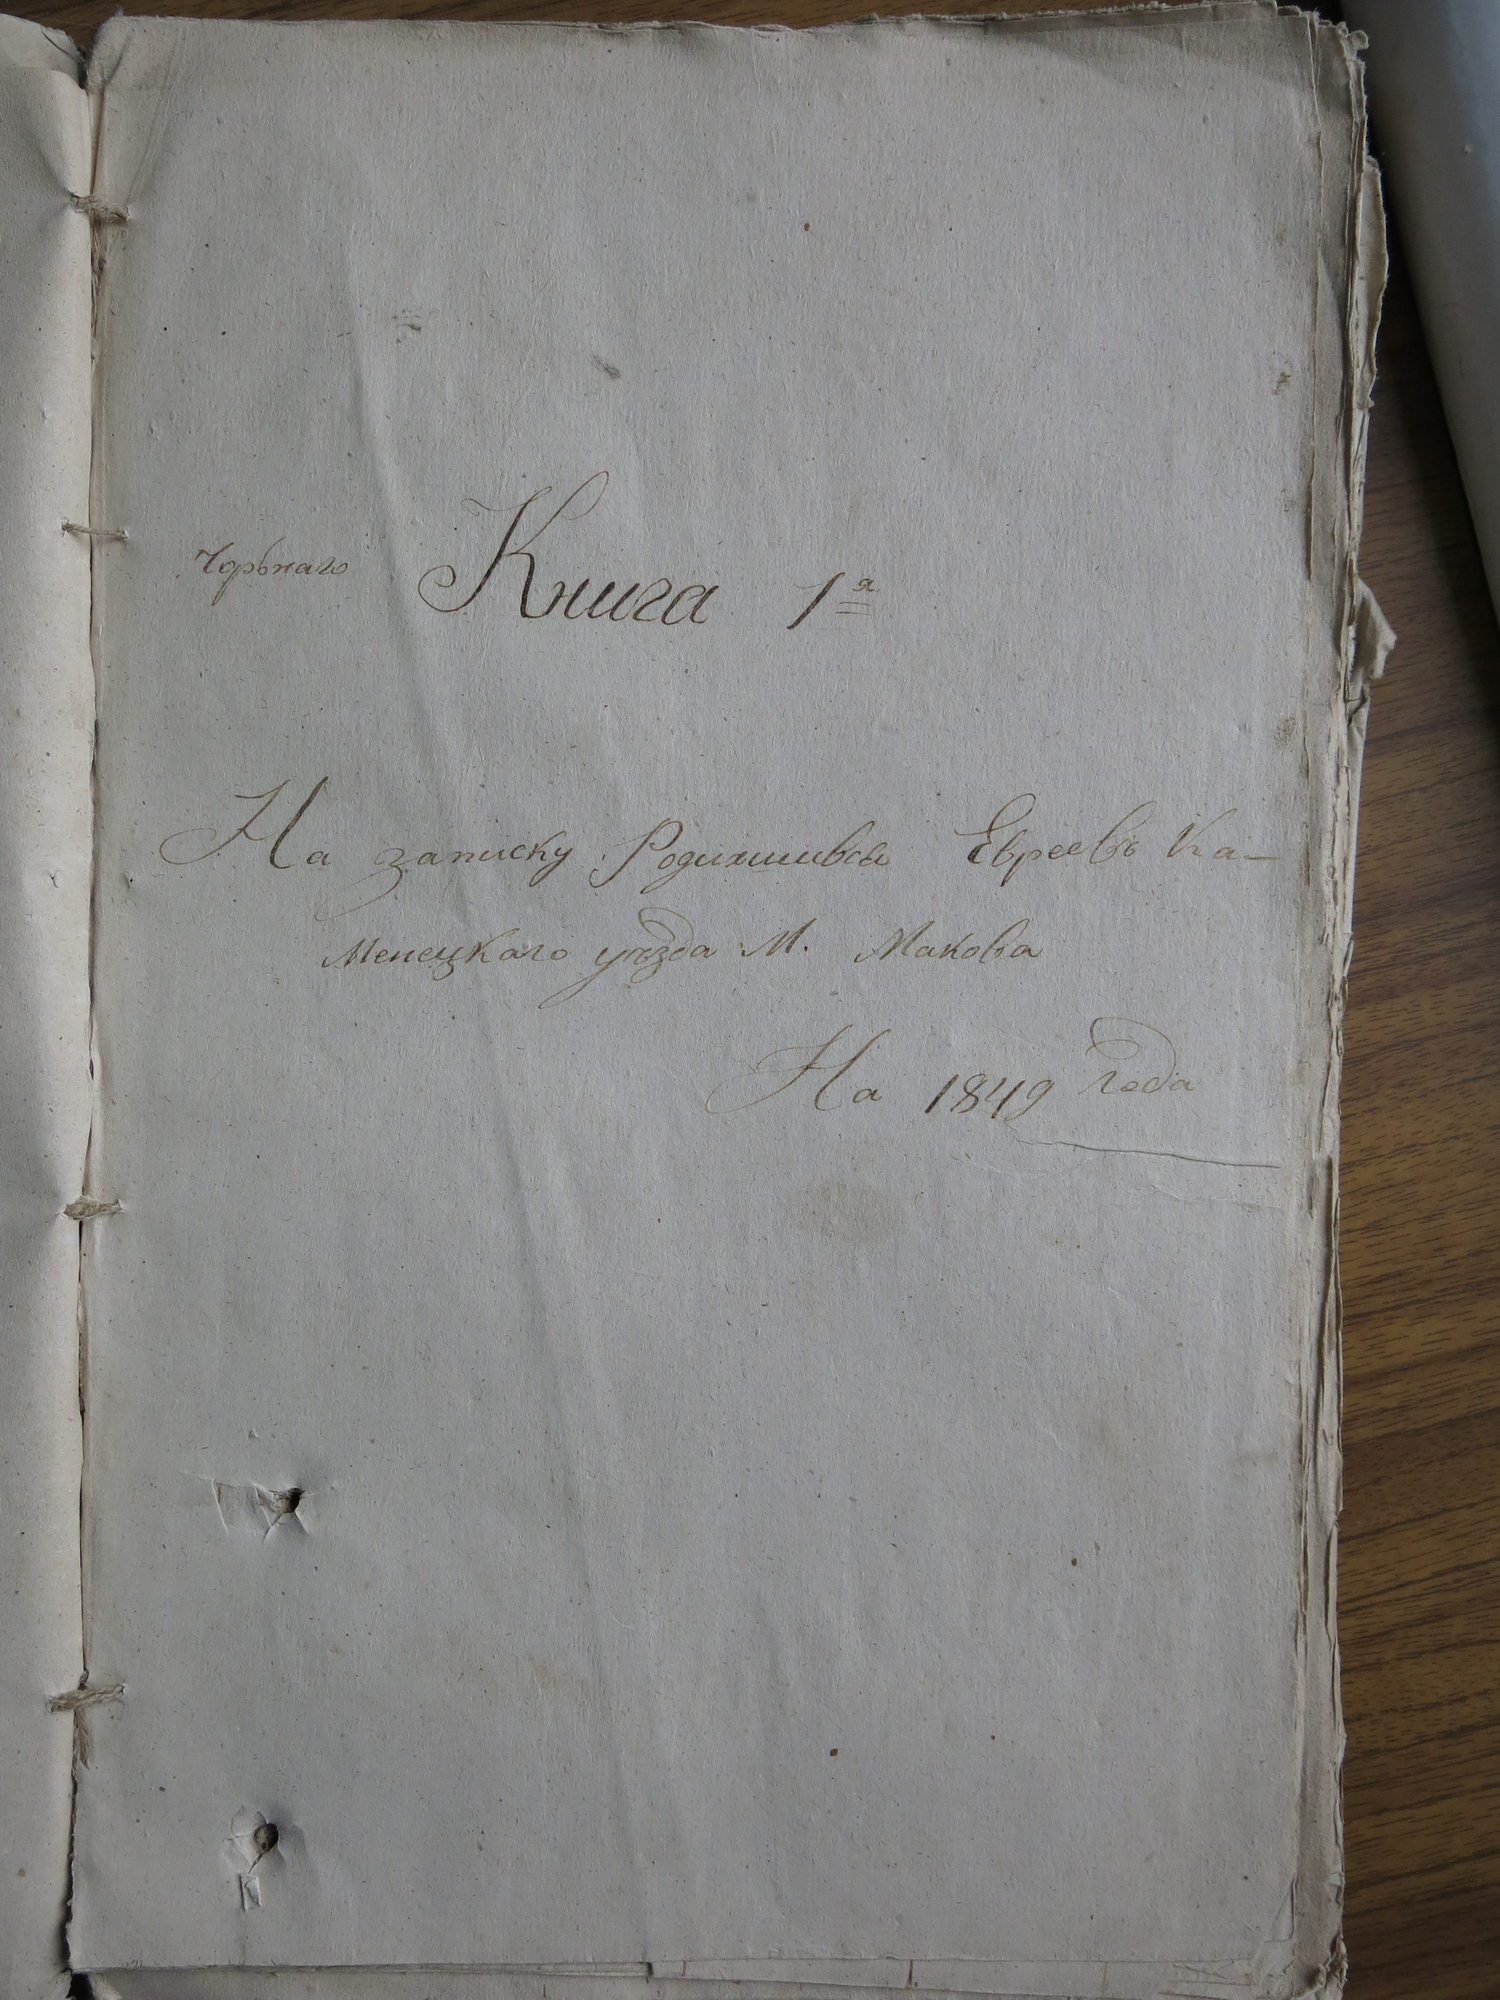 Книга 1я
На записку Родихшився Евреевъ Ка-
менецкаго уѣзда М. Макова
На 1849 года